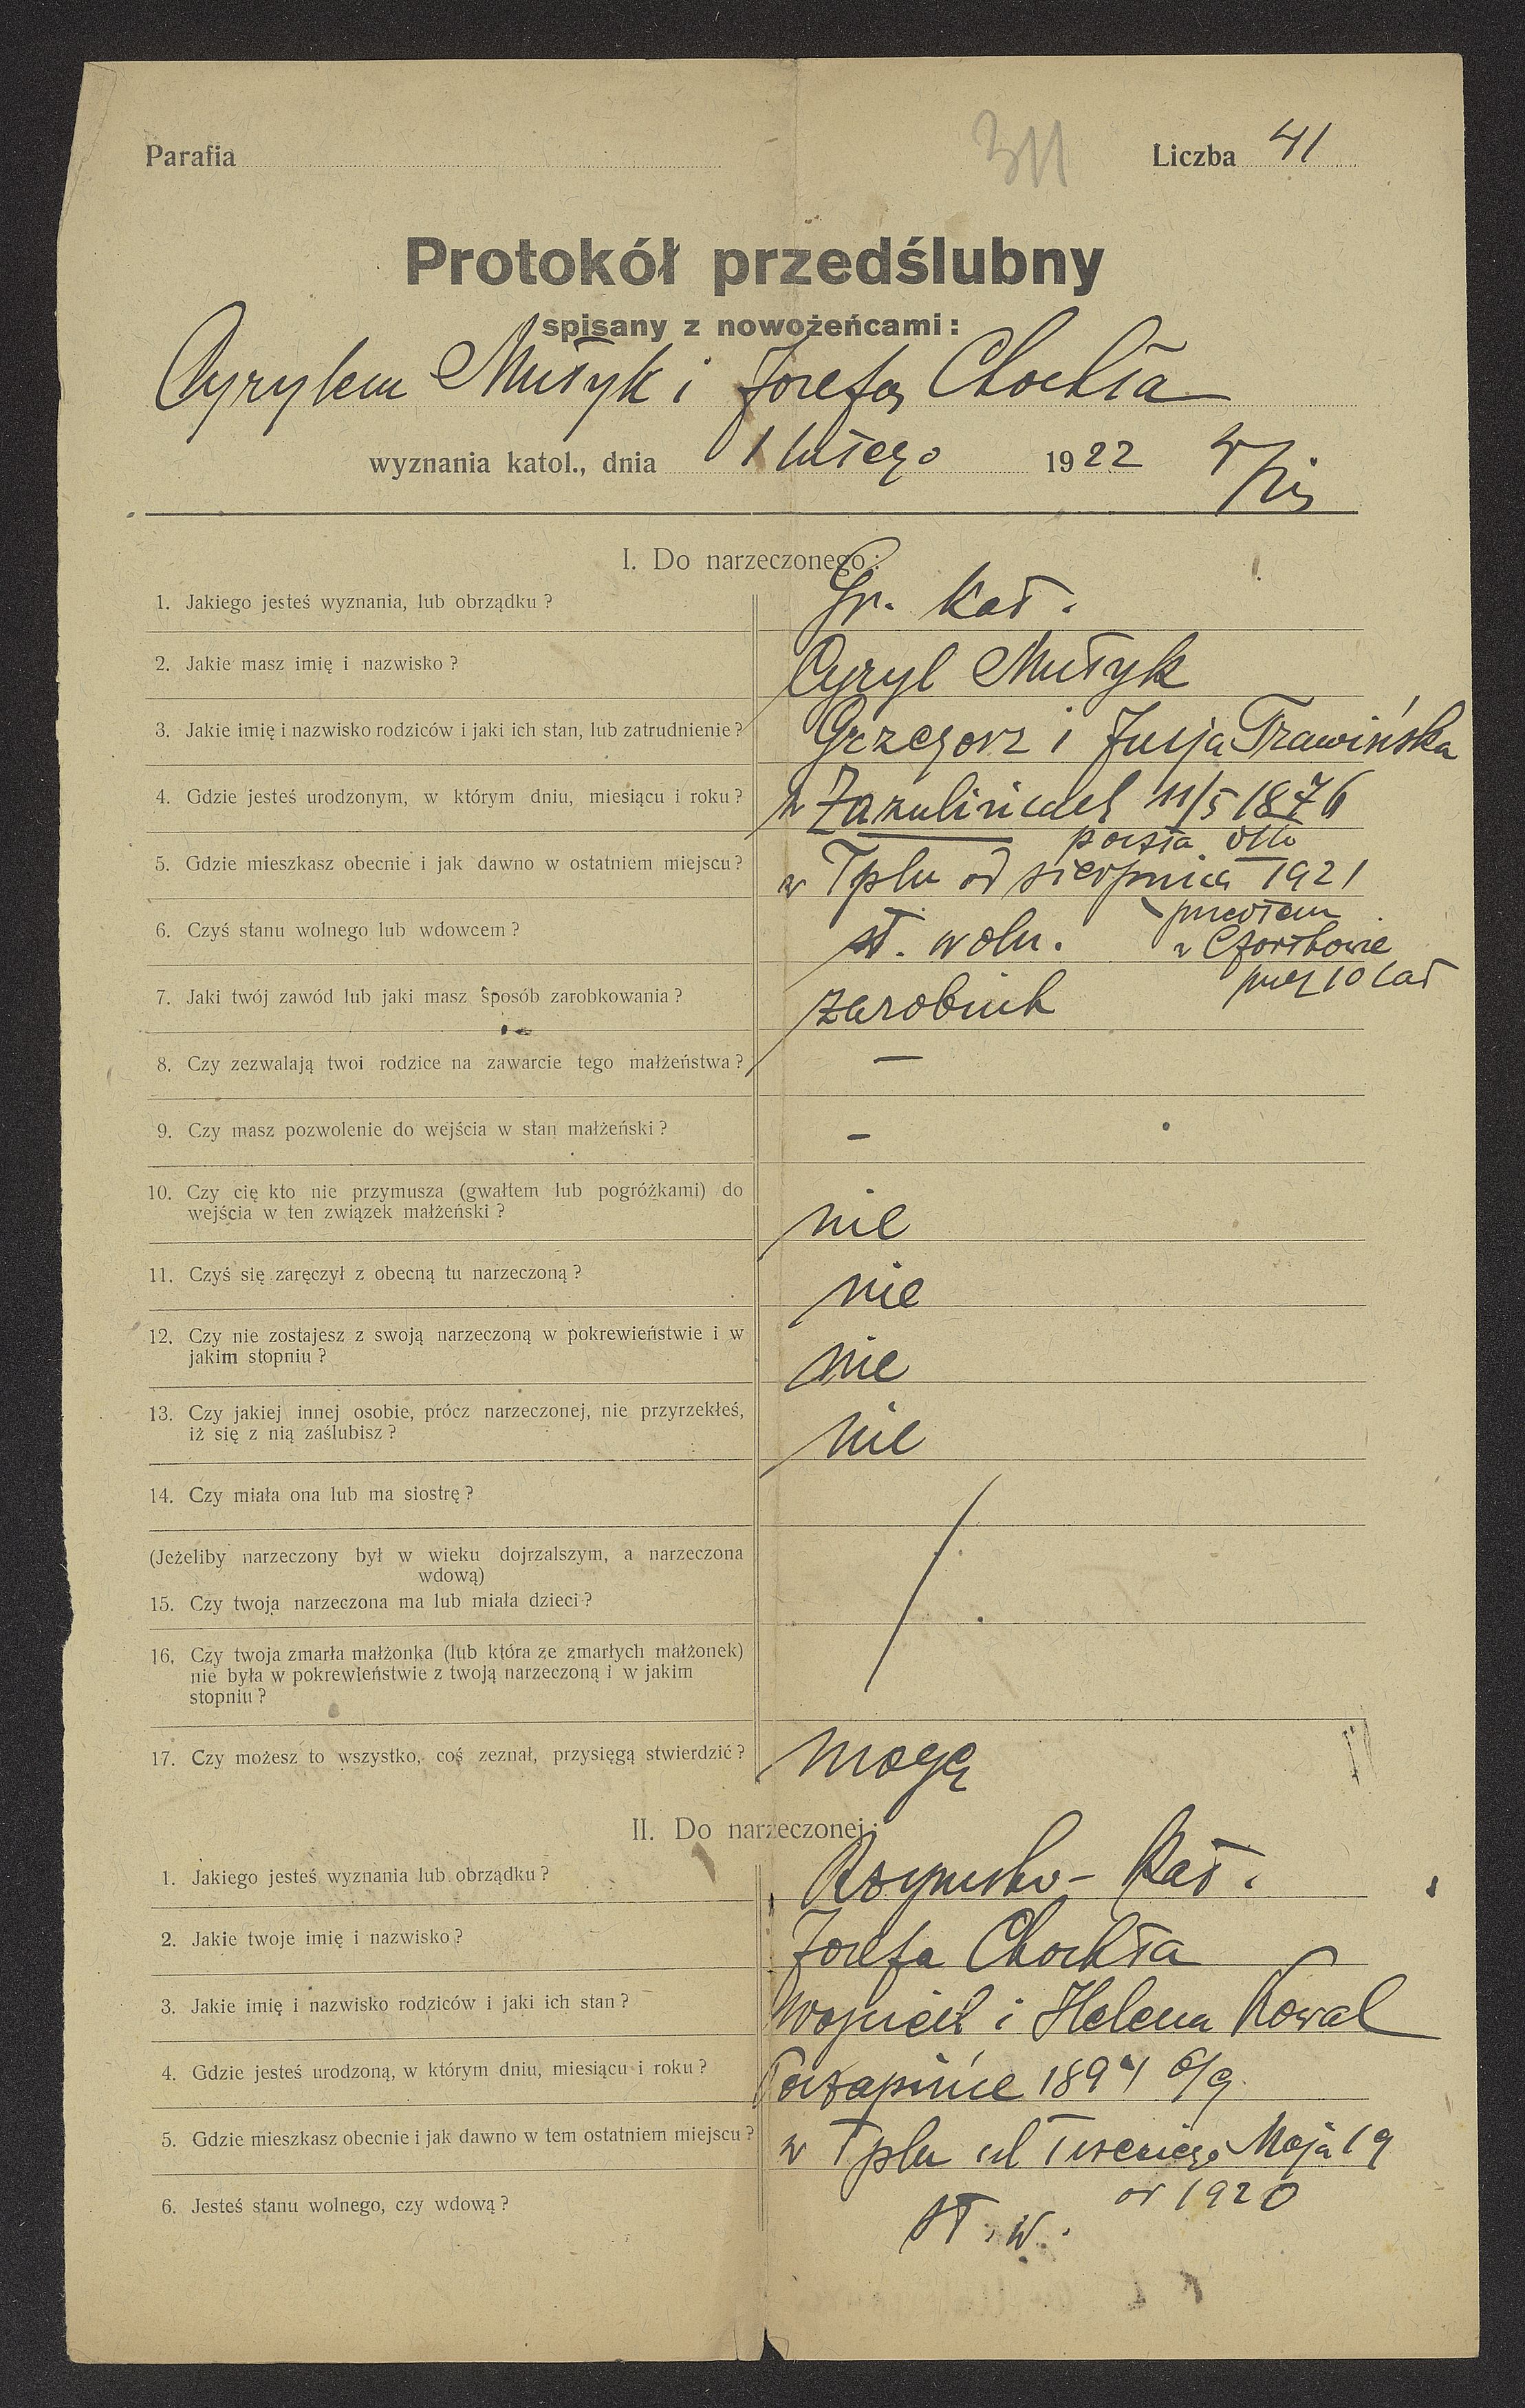 Parafia
311
Liczba 41
Protokół przedślubny
spisany z nowożeńcami:
Cyrylem Mutyk i Józefą Chochta
wyznania katol., dnia 1 lutego 1922
I. Do narzeczonego:
1. Jakiego jesteś wyznania, lub obrządku? Gr. kat.
2. Jakie masz imię i nazwisko? Cyryl Mutyk
3. Jakie imię i nazwisko rodziców i jaki ich stan, lub zatrudnienie? Grzegorz i Trawińska
4. Gdzie jesteś urodzonym, w którym dniu, miesiącu i roku? w Zazulińcach 11/5 1876
poczta
5. Gdzie mieszkasz obecnie i jak dawno w ostatniem miejscu? w Tplu od sierpnia 1921
przedtem
6. Czyś stanu wolnego lub wdowcem? st. woln. w Czortkowie
przez 10 lat
7. Jaki twój zawód lub jaki masz sposób zarobkowania? zarobnik
8. Czy zezwalają twoi rodzice na zawarcie tego małżeństwa? —
9. Czy masz pozwolenie do wejścia w stan małżeński? –
10. Czy cię kto nie przymusza (gwałtem lub pogróżkami) do
wejścia w ten związek małżeński? nie
11. Czyś się zaręczył z obecną tu narzeczoną? nie
12. Czy nie zostajesz z swoją narzeczoną w pokrewieństwie i w
jakim stopniu? nie
13. Czy jakiej innej osobie, prócz narzeczonej, nie przyrzekłeś,
iż się z nią zaślubisz? nie
14. Czy miała ona lub ma siostrę?
(Jeżeliby narzeczony był w wieku dojrzalszym, a narzeczona
wdową)
15. Czy twoja narzeczona ma lub miała dzieci?
16. Czy twoja zmarła małżonka (lub która ze zmarłych małżonek)
nie była w pokrewieństwie z twoją narzeczoną i w jakim
stopniu?
17. Czy możesz to wszystko, coś zeznał, przysięgą stwierdzić? mogę
II. Do narzeczonej:
1. Jakiego jesteś wyznania lub obrządku? Rzymsko-kat.
2. Jakie twoje imię i nazwisko? Józefa Chochta
3. Jakie imię i nazwisko rodziców i jaki ich stan? Wojciech i Helena Kowal
4. Gdzie jesteś urodzoną, w którym dniu, miesiącu i roku? Poczapińce 1894 6/9
5. Gdzie mieszkasz obecnie i jak dawno w tem ostatniem miejscu? w Tplu ul Trzeciego Maja 19
od 1920
6. Jesteś stanu wolnego, czy wdową? st. w.